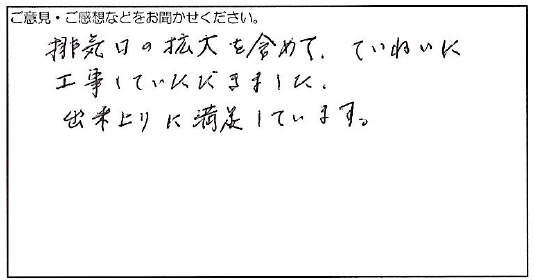 ご意見・ご感想などをお聞かせください。
排気口の拡大を含めて、ていねいに
工事していただきました。
出来上りに満足しています。